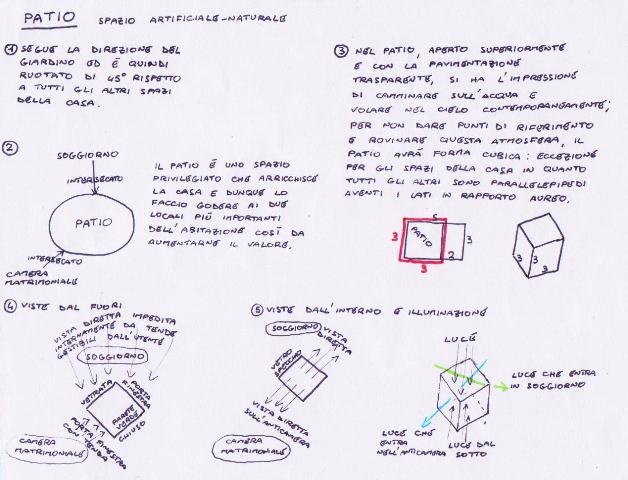 PATIO SPAZIO ARTIFICIALE-NATURALE
1 SEGUE LA DIREZIONE DEL
GIARDINO ED È QUINDI
RUOTATO DI 45° RISPETTO
A TUTTI GLI ALTRI SPAZI
DELLA CASA.
2
SOGGIORNO
INTERSECATO
PATIO
INTERSECATO
CAMERA
MATRIMONIALE
IL PATIO È UNO SPAZIO
PRIVILEGIATO CHE ARRICCHISCE
LA CASA E DUNQUE LO
FACCIO GODERE AI DUE
LOCALI PIÚ IMPORTANTI
DELL'ABITAZIONE COSÍ DA
AUMENTARNE IL VALORE.
3 NEL PATIO, APERTO SUPERIORMENTE
E CON LA PAVIMENTAZIONE
TRASPARENTE, SI HA L'IMPRESSIONE
DI CAMMINARE SULL'ACQUA E
VOLARE NEL CIELO CONTEMPORANEAMENTE;
PER NON DARE PUNTI DI RIFERIMENTO
E ROVINARE QUESTA ATMOSFERA, IL
PATIO AVRÁ FORMA CUBICA: ECCEZIONE
PER GLI SPAZI DELLA CASA IN QUANTO
TUTTI GLI ALTRI SONO PARALLELEPIPEDI
AVENTI I LATI IN RAPPORTO AUREO.
5
3
PATIO
3
2
3
3
3
3
4 VISTE DAL FUORI
VISTA DIRETTA IMPEDITA
INTERNAMENTE DA TENDE
GESTIBILI DALL'UTENTE
SOGGIORNO
VETRATA
PORTA
FINESTRA
PARETE
VERDE
CHIUSO
PORTA FINESTRA
CON TENDA
CAMERA
MATRIMONIALE
5 VISTE DALL'INTERNO E ILLUMINAZIONE
SOGGIORNO
VISTA
DIRETTA
VETRO
SPECCHIO
VISTA DIRETTA
SULL'ANTICAMERA
CAMERA
MATRIMONIALE
LUCE
LUCE CHE ENTRA
IN SOGGIORNO
LUCE CHE
ENTRA
NELL'ANTICAMERA
LUCE DAL
SOTTO